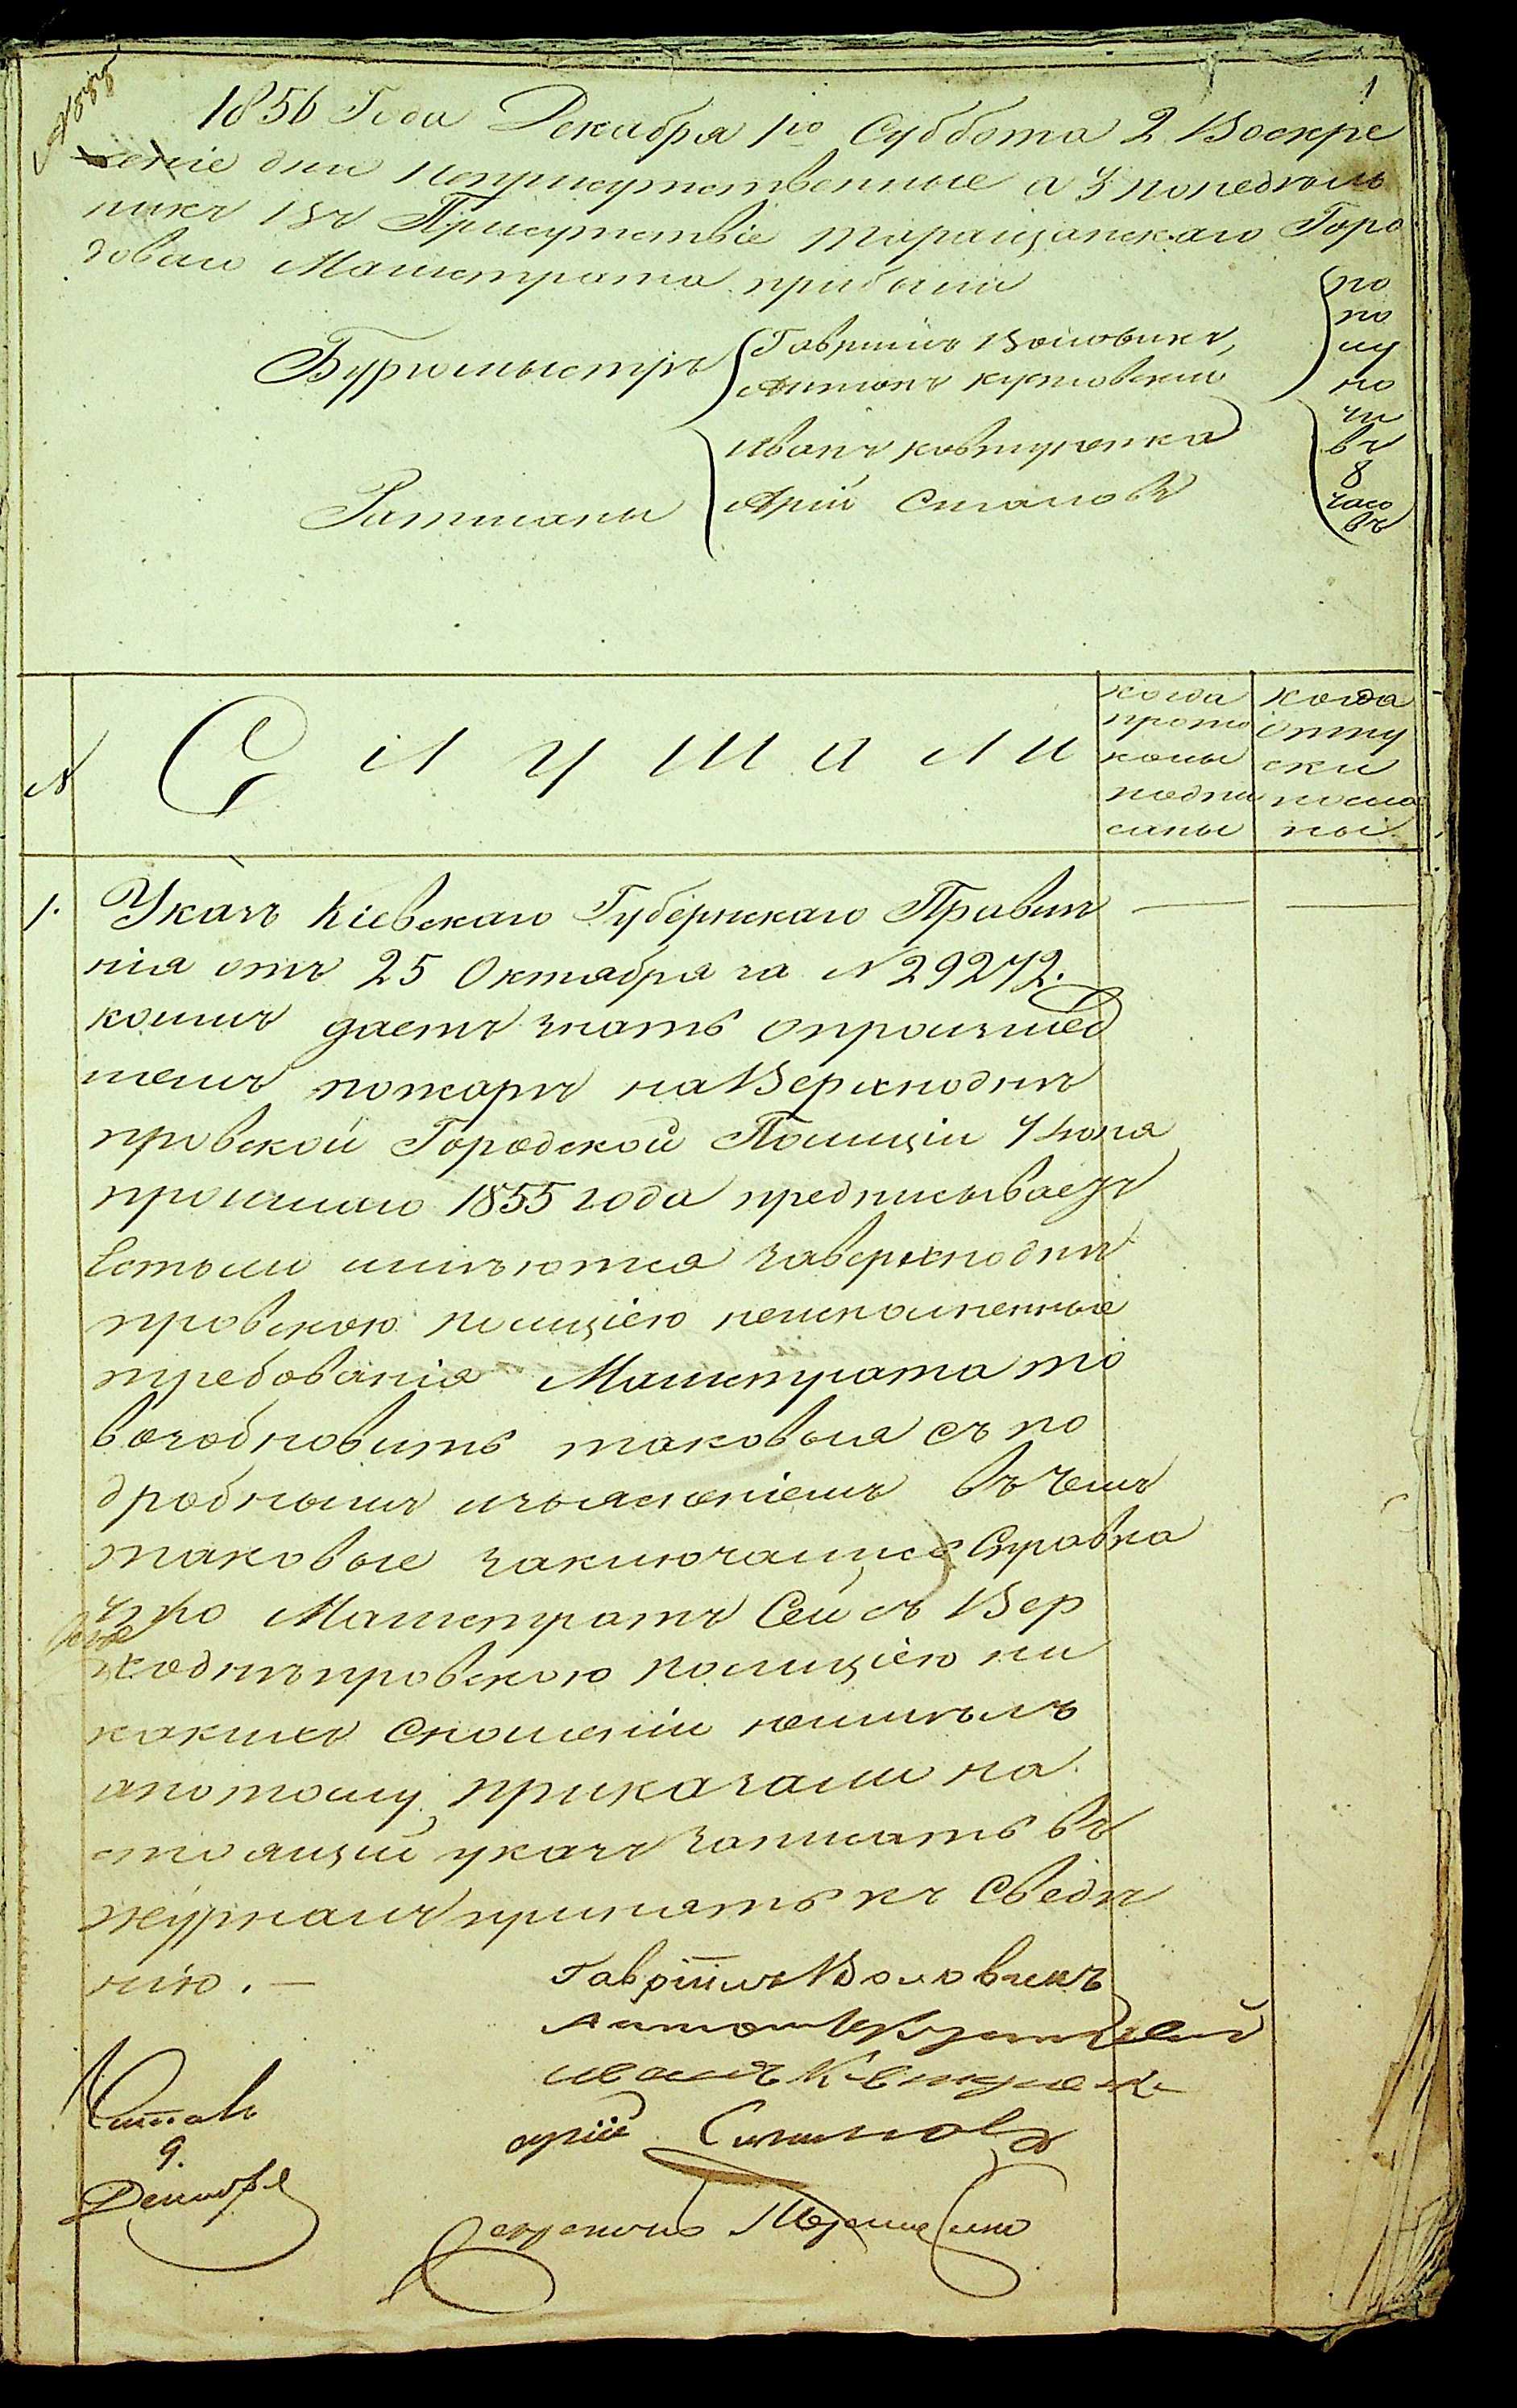 1
1856 Года Декабря 1го Суббота 2 Воскре
сеніе дни неприсутственные а 3 понедѣль
никъ въ Присутствіе Таращанскаго Горо
доваго Магистрата прибыли
Бургомыстръ
Гавріилъ Воловикъ,
Антонъ
Ратманы
Иванъ Ковтуненка
Арій Сталовъ
по
по
лу
но
чи
въ
8
часо
въ
N
Слушали
когда
прото
колы
подпи
саны
когда
отпу
ски
посла
ны
1. Указъ Кіевскаго Губернскаго Правле
нія отъ 25 Октября за N 29272.
коимъ даетъ знать опроизшед
шемъ пожарѣ наВерхноднѣ
провской Городской Полиціи 7 Іюня
прошлаго 1855 года предписываетъ
Естьли имѣются заверхноднѣ
провскою полиціею неисполненные
требованія Магистрата то
возобновить таковыя съ по
дробнымъ изъясненіемъ въ чемъ
таковые заключались Справка
что Магистратъ Сей съ Вер
ходнѣпровскою полиціею ни
какихъ сношеній неимѣлъ
апотому, приказали на
стоящій указъ записать въ
журналъ принять къ Сведѣ
нію. —
Гавріилъ Воловикъ
Антонъ
Иванъ Ковтуненко
Арій Сталовъ
Читалъ
9.
Декабря
Секретарь